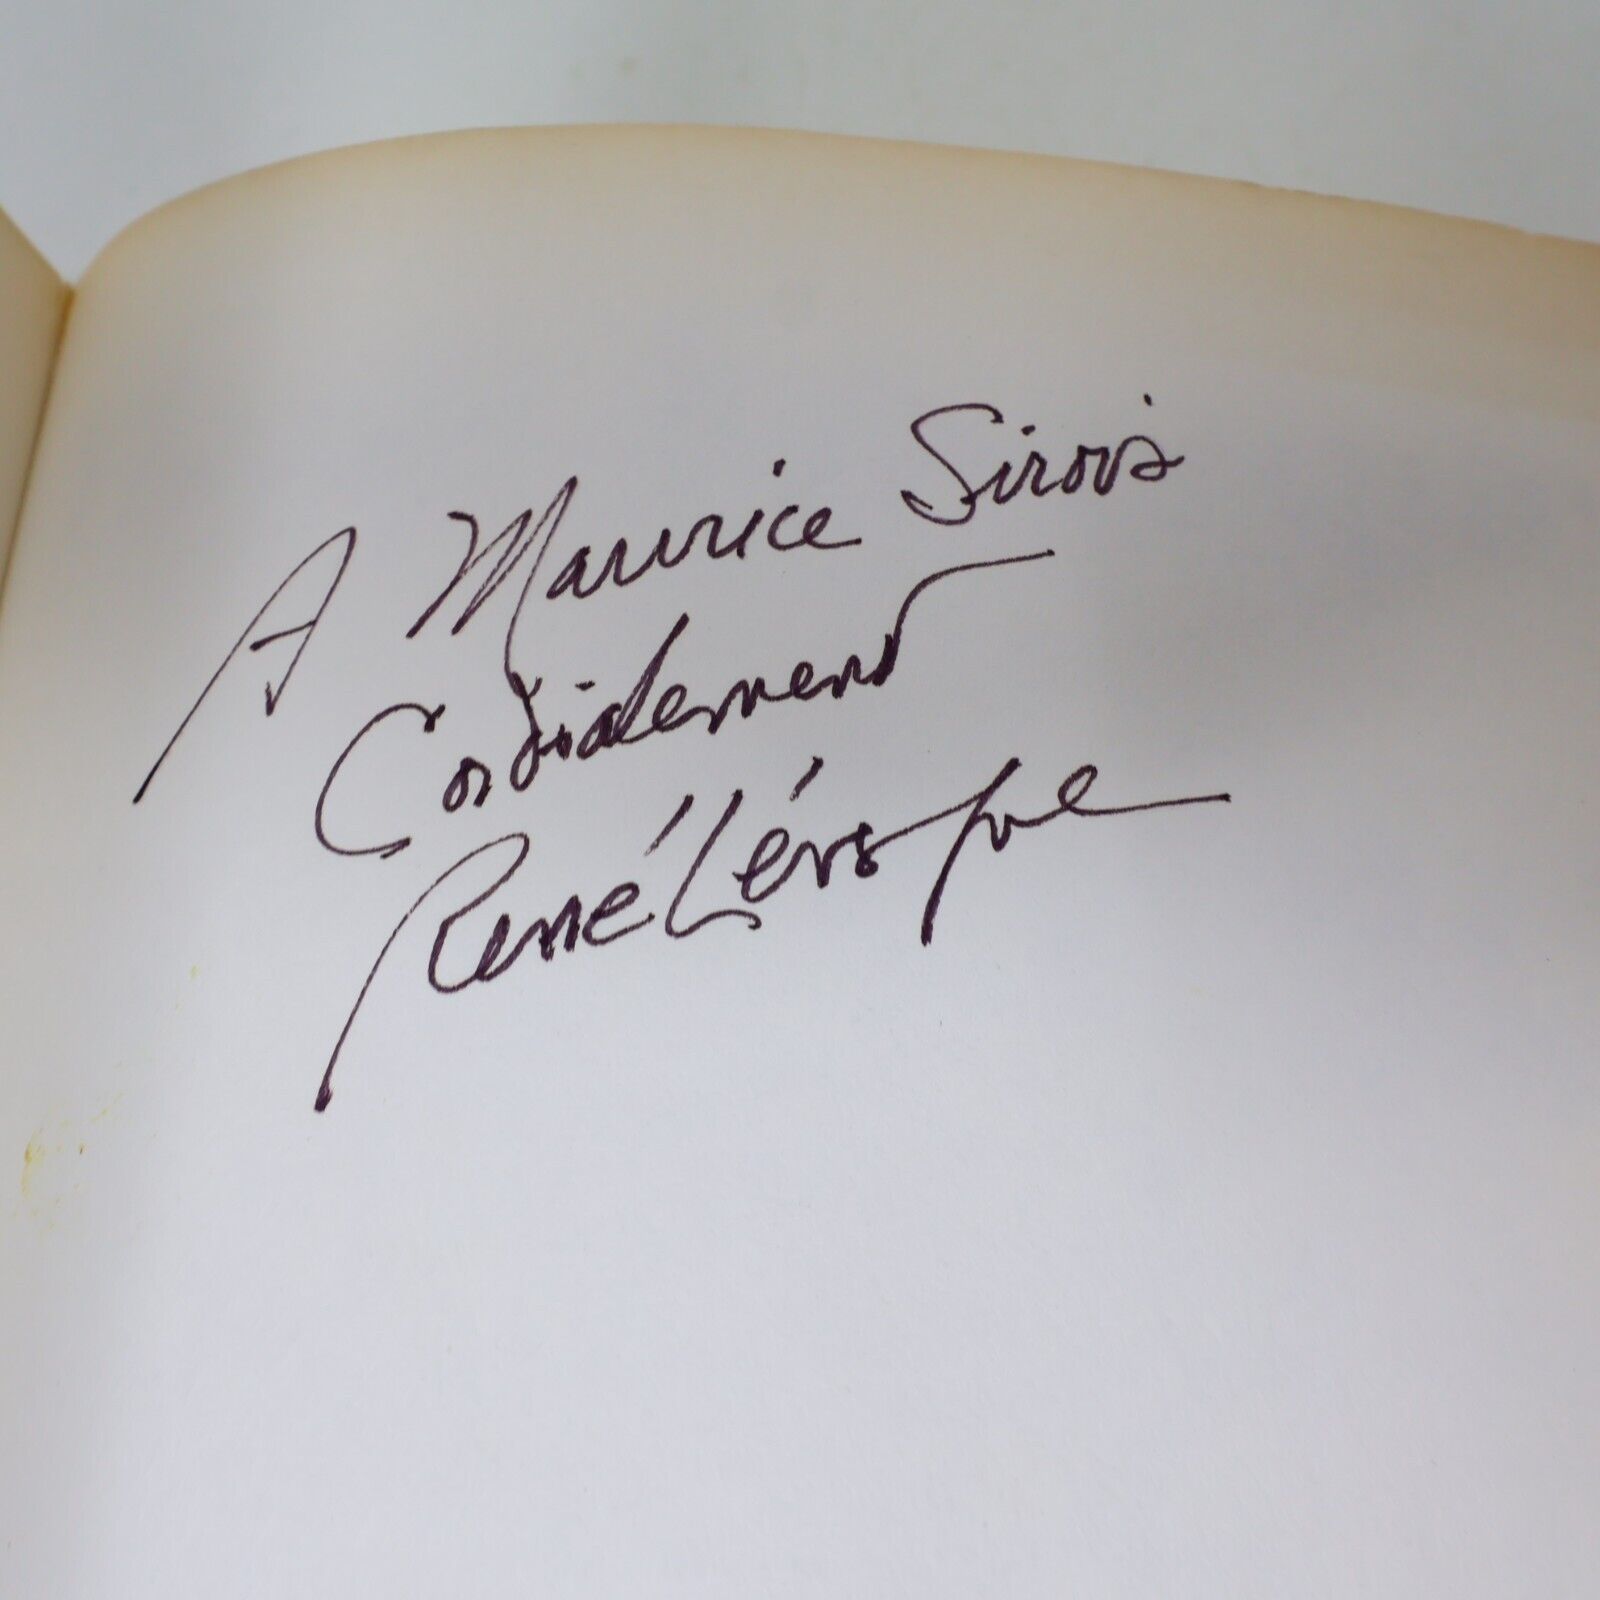 A Maurice Sirois
Cordialement
René Lévesque